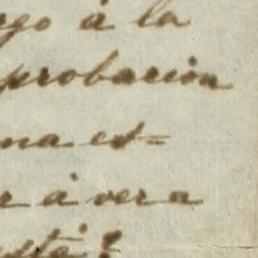 rgo á la
probacion
na es=
r á ver a
está